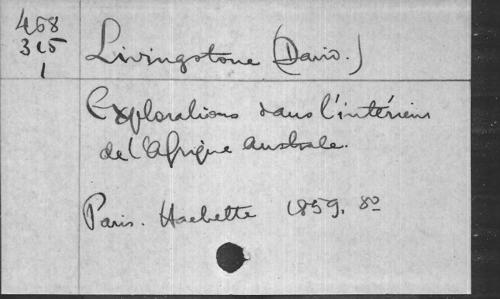 458
315
1
Livingstone (David.)
Explorations dans l'intérieur
de l'Afrique australe.
Paris. Hachette 1859. 8º